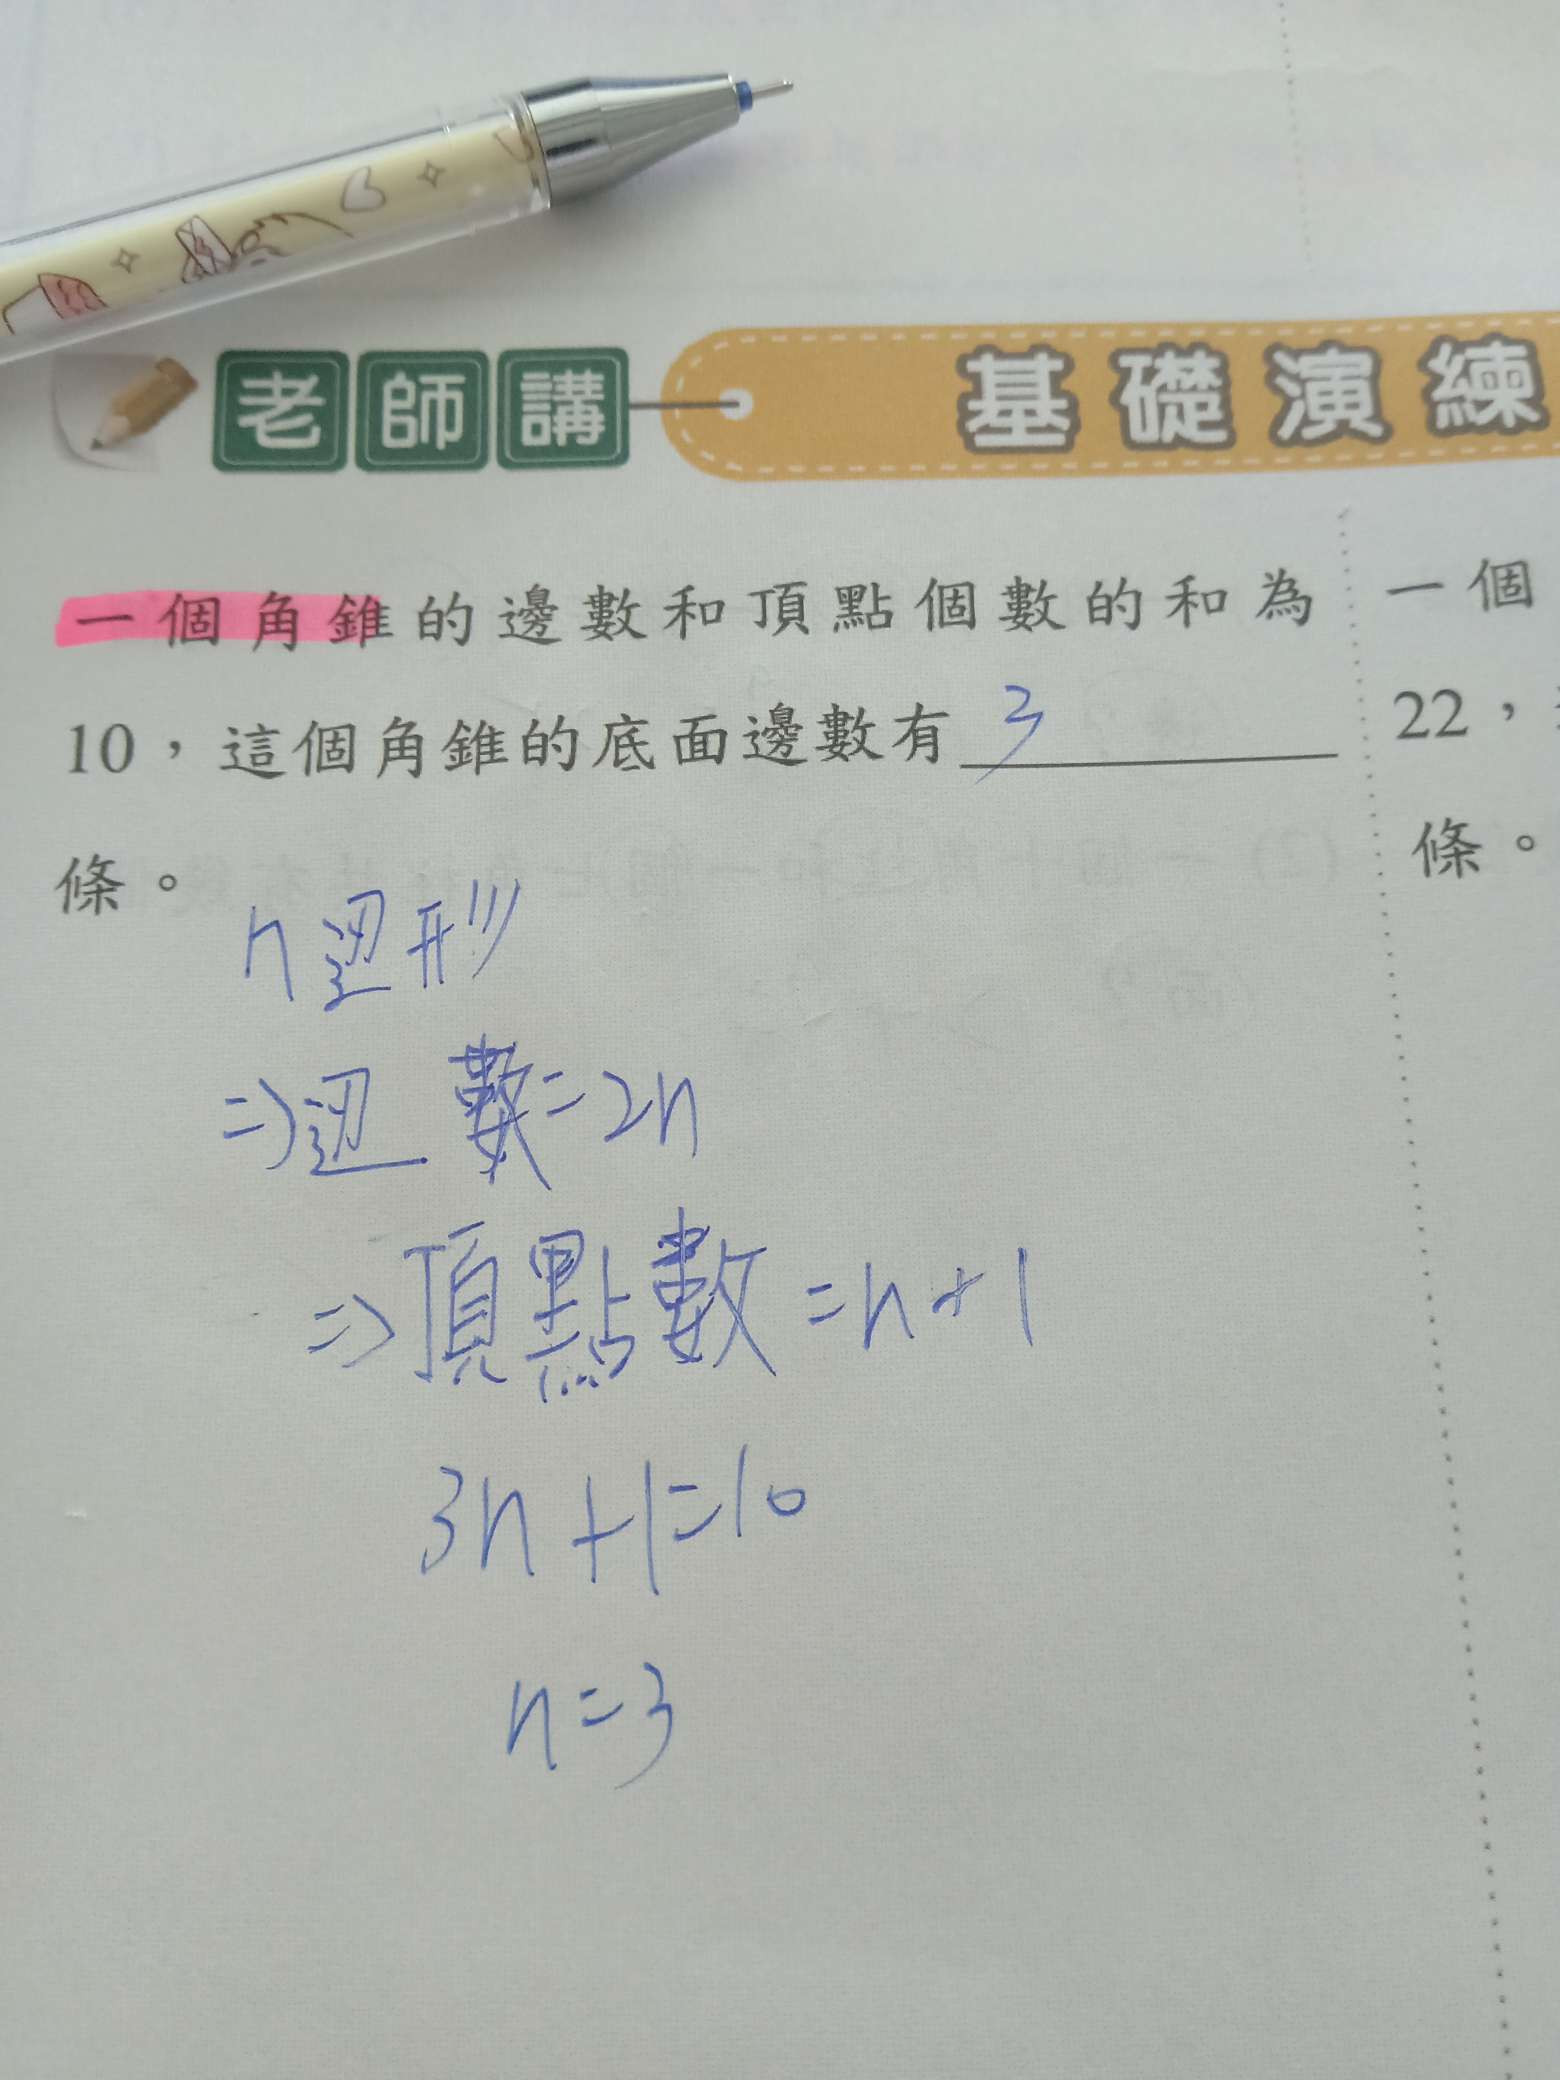 老師講 基礎演練
一個角錐的邊數和頂點個數的和為
10，這個角錐的底面邊數有 3
條。
n边形
⇒边數=2n
⇒頂點數=n+1
3n+1=10
n=3
一個
22，
條。